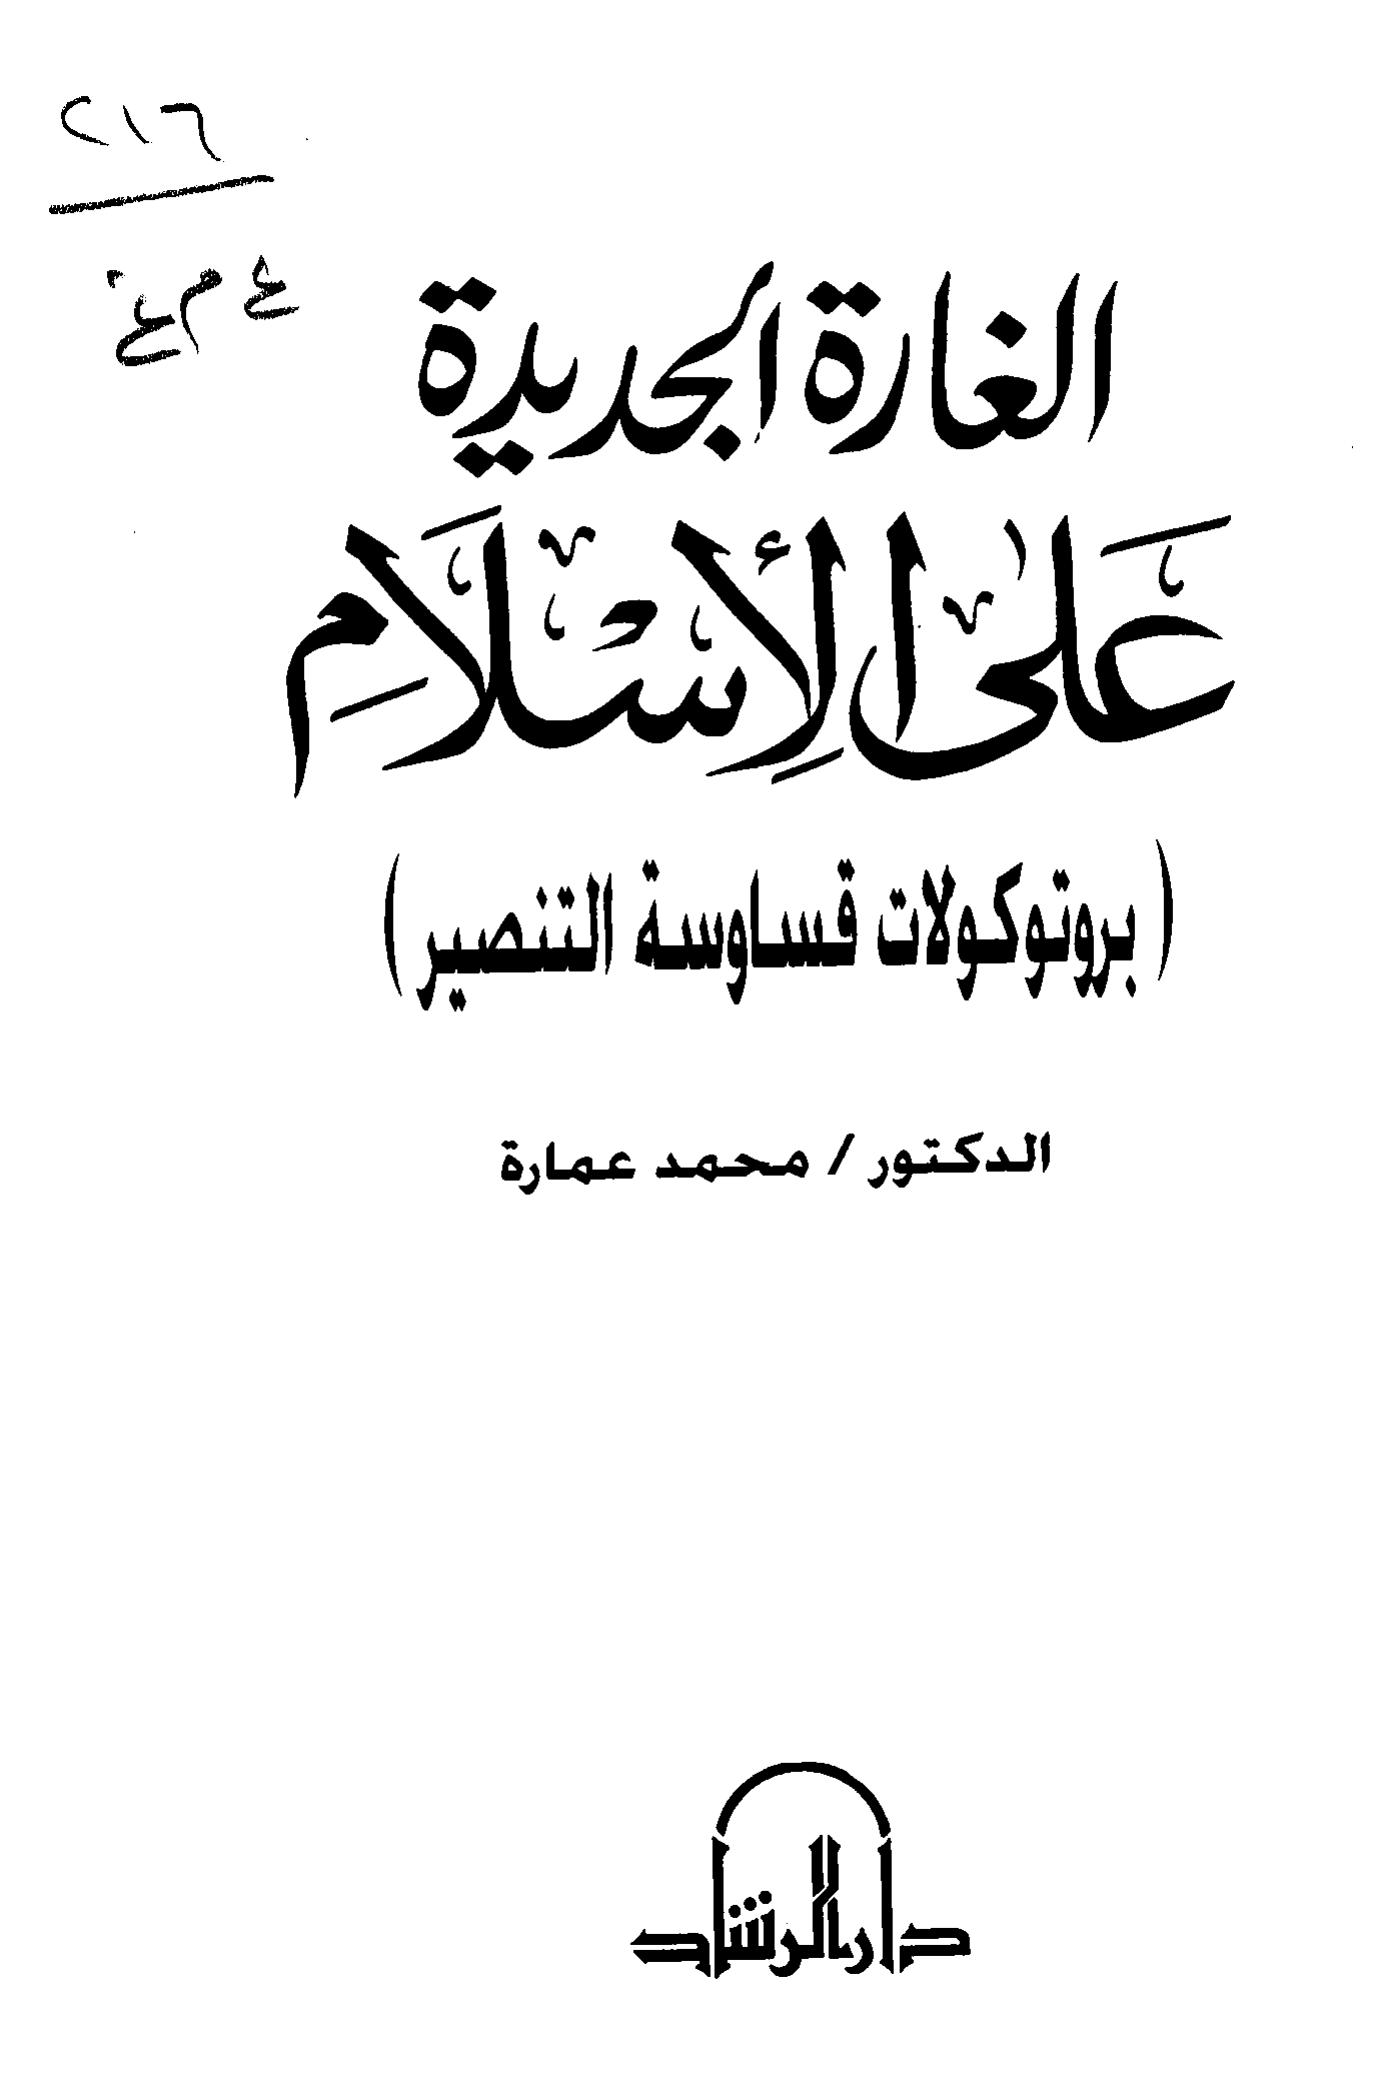 ٢١٦
ع م غ
الغارة الجديدة
عَلَى الإِسْلَامِ
(بروتوكولات قساوسة التنصير)
الدكتور / محمد عمارة
دار الرشاد